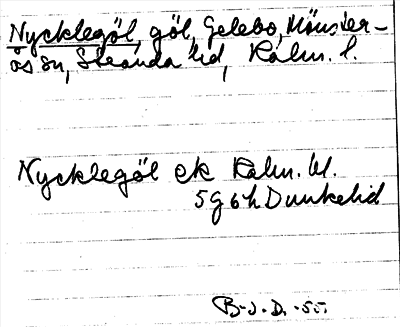 Nycklegöl, göl, Gelebo, Mönster-
ås sn, Stranda hd, Kalm. l.
Nycklegöl ek Kalm. bl.
5g6h Dunkelid
B-J.D.-55.